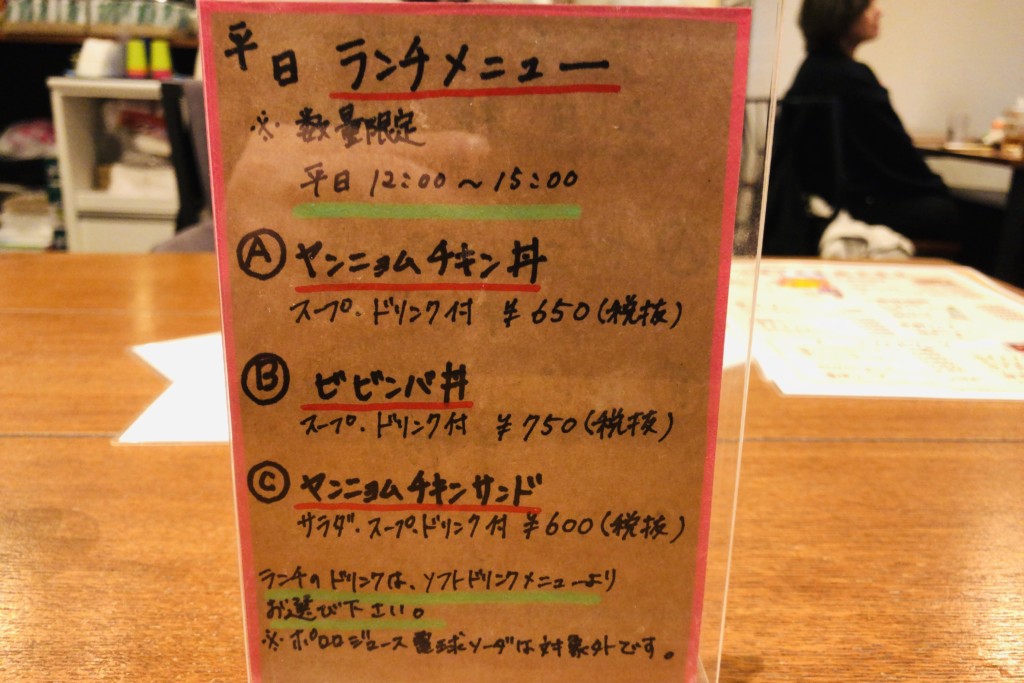 平日 ランチメニュー
※ 数量限定
平日 12:00 ~ 15:00
Ⓐ ヤンニョムチキン丼
スープ・ドリンク付 ¥650(税抜)
Ⓑ ビビンバ丼
スープ・ドリンク付 ¥750(税抜)
Ⓒ ヤンニョムチキンサンド
サラダ・スープ・ドリンク付 ¥600(税抜)
ランチのドリンクは、ソフトドリンクメニューより
お選び下さい。
※ ポロロジュース 電球ソーダは対象外です。